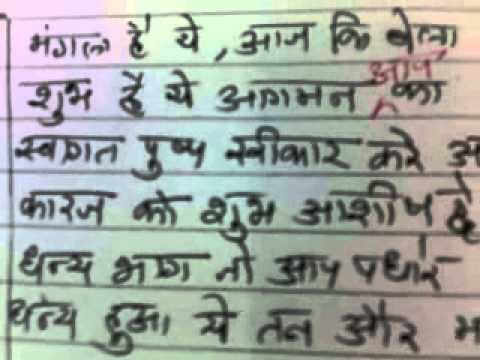 मंगल है ये, आज कि बेला
शुभ है ये आगमन आप का
स्वागत पुष्प स्वीकार करे
कारज को शुभ आशीष दे
धन्य भाग जो आप पधारे
धन्य हुआ ये तन और म